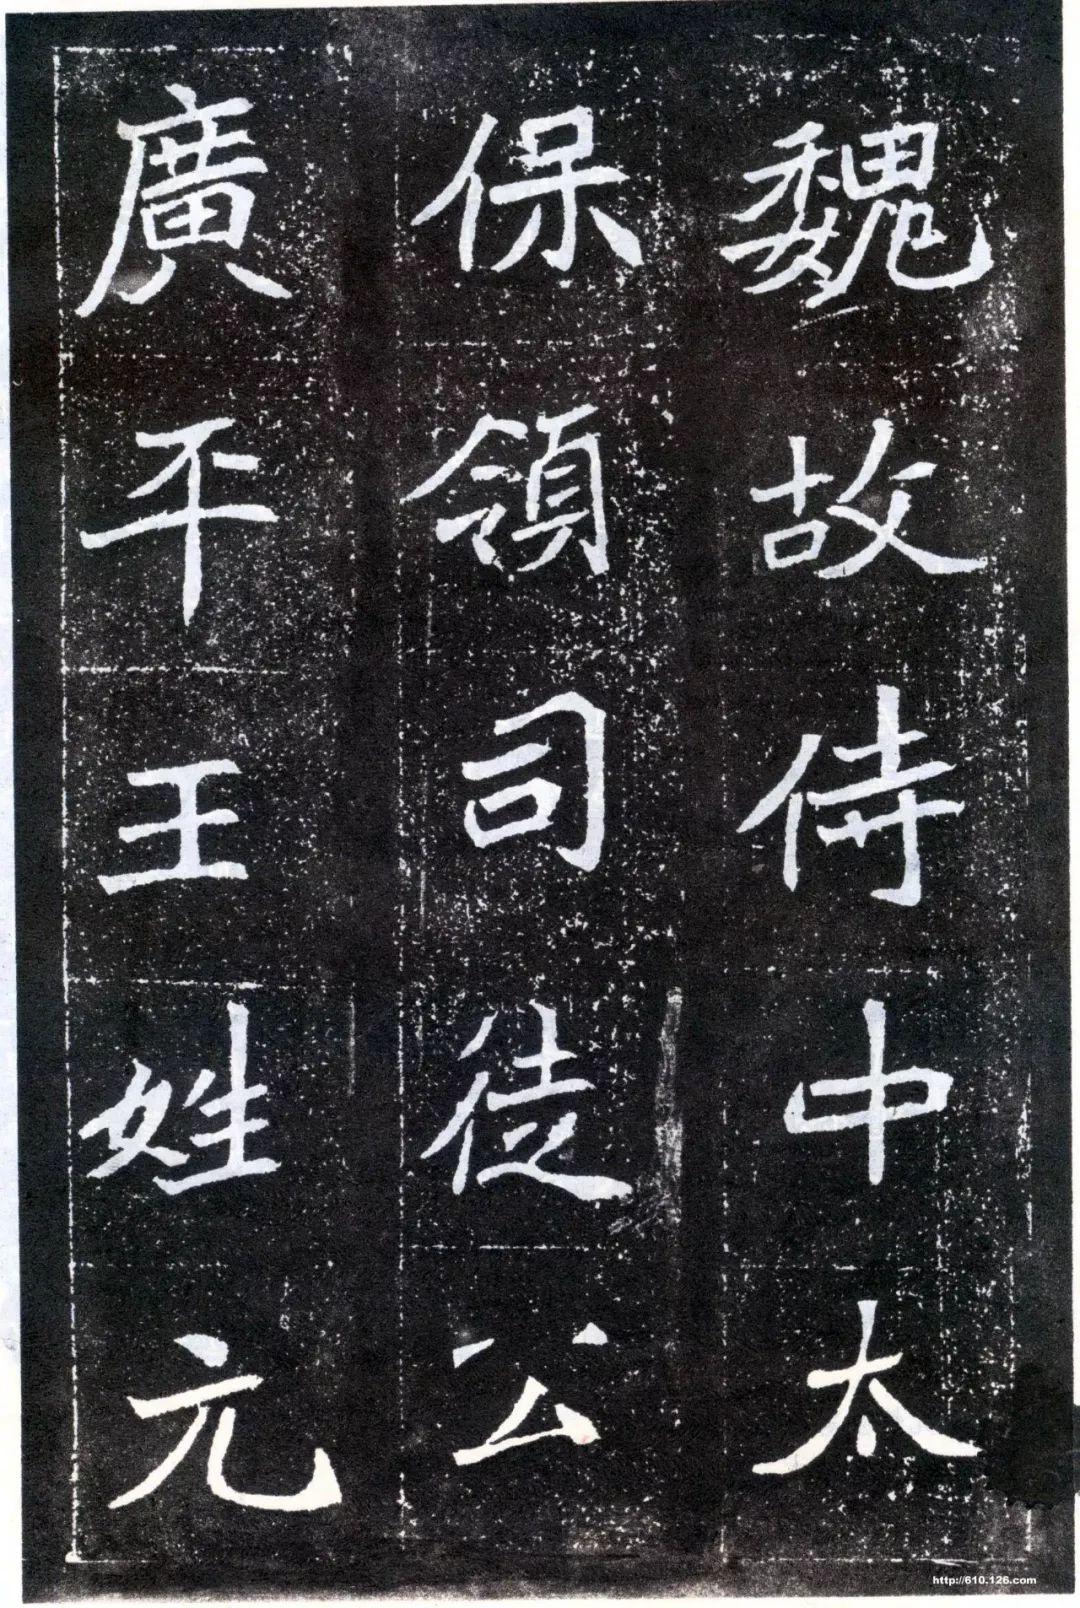 魏故侍中太
保領司徒公
廣平王姓元
http://610.126.com